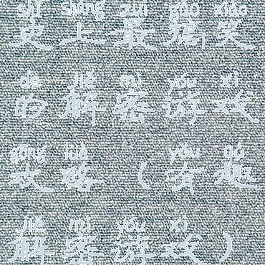 shǐ shàng zuì bào xiào
史上最爆笑
de jiě mì yóu xì
的解密游戏
gōng lüè yǒu qù
攻略（有趣
jiě mì yóu xì
解密游戏）